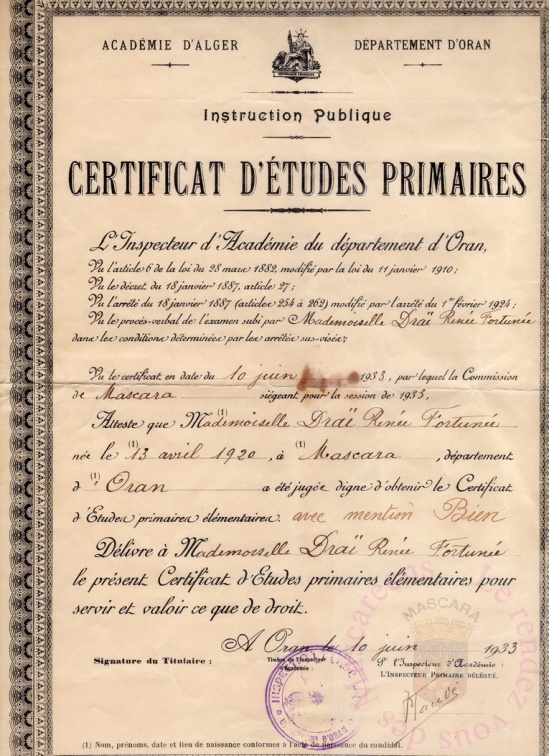 ACADÉMIE D'ALGER
DÉPARTEMENT D'ORAN
Instruction Publique
CERTIFICAT D'ÉTUDES PRIMAIRES
L'Inspecteur d'Académie du département d'Oran,
Vu l'article 6 de la loi du 28 mars 1882, modifié par la loi du 11 janvier 1910;
Vu le décret du 18 janvier 1887, article 27;
Vu l'arrêté du 18 janvier 1887 (articles 254 à 262) modifié par l'arrêté du 1er février 1924;
Vu le procès-verbal de l'examen subi par Mademoiselle Draï Renée Fortunée
dans les conditions déterminées par les arrêtés sus-visés;
Vu le certificat en date du 10 juin 1933, par lequel la Commission
de Mascara siégeant pour la session de 1933,
Atteste que M(1)ademoiselle Draï Renée Fortunée
née le (1) 13 avril 1920, à (1) Mascara, département
d (1)' Oran a été jugée digne d'obtenir le Certificat
d'Etudes primaires élémentaires. avec mention Bien
Délivré à Mademoiselle Draï Renée Fortunée
le présent Certificat d'Etudes primaires élémentaires pour
servir et valoir ce que de droit.
A Oran, le 10 juin 1933
Signature du Titulaire :
Timbre de l'Inspecteur
d'Académie :
Pr l'Inspecteur d'Académie :
L'INSPECTEUR PRIMAIRE DÉLÉGUÉ,
MASCARA
Le rendez vous des
(1) Nom, prénoms, date et lieu de naissance conformes à l'acte de naissance du candidat.